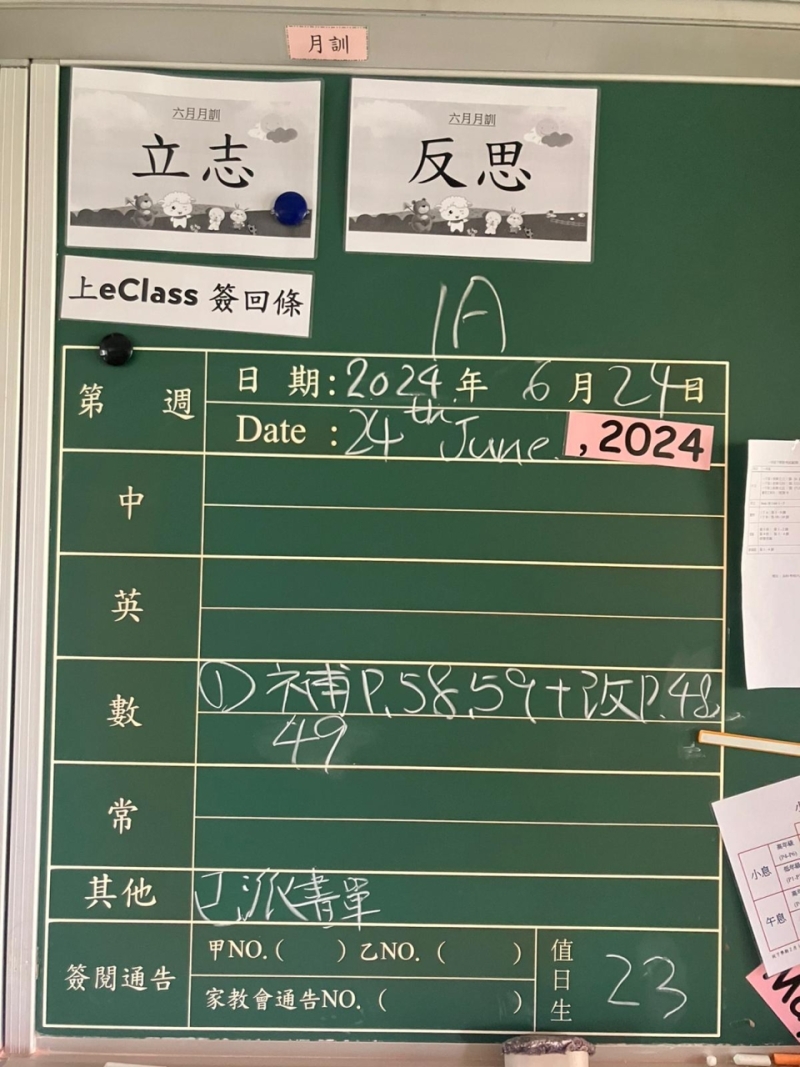 月訓
六月月訓
立志
六月月訓
反思
上eClass 簽回條
1A
第 週
日 期:2024年 6月24日
Date :24th June. , 2024
中
英
數
① 補P.58,59+改P.48,
49
常
其他
已派書單
簽閱通告
甲NO.( ) 乙NO.( )
家教會通告NO.( )
值日生
23
小息
午息